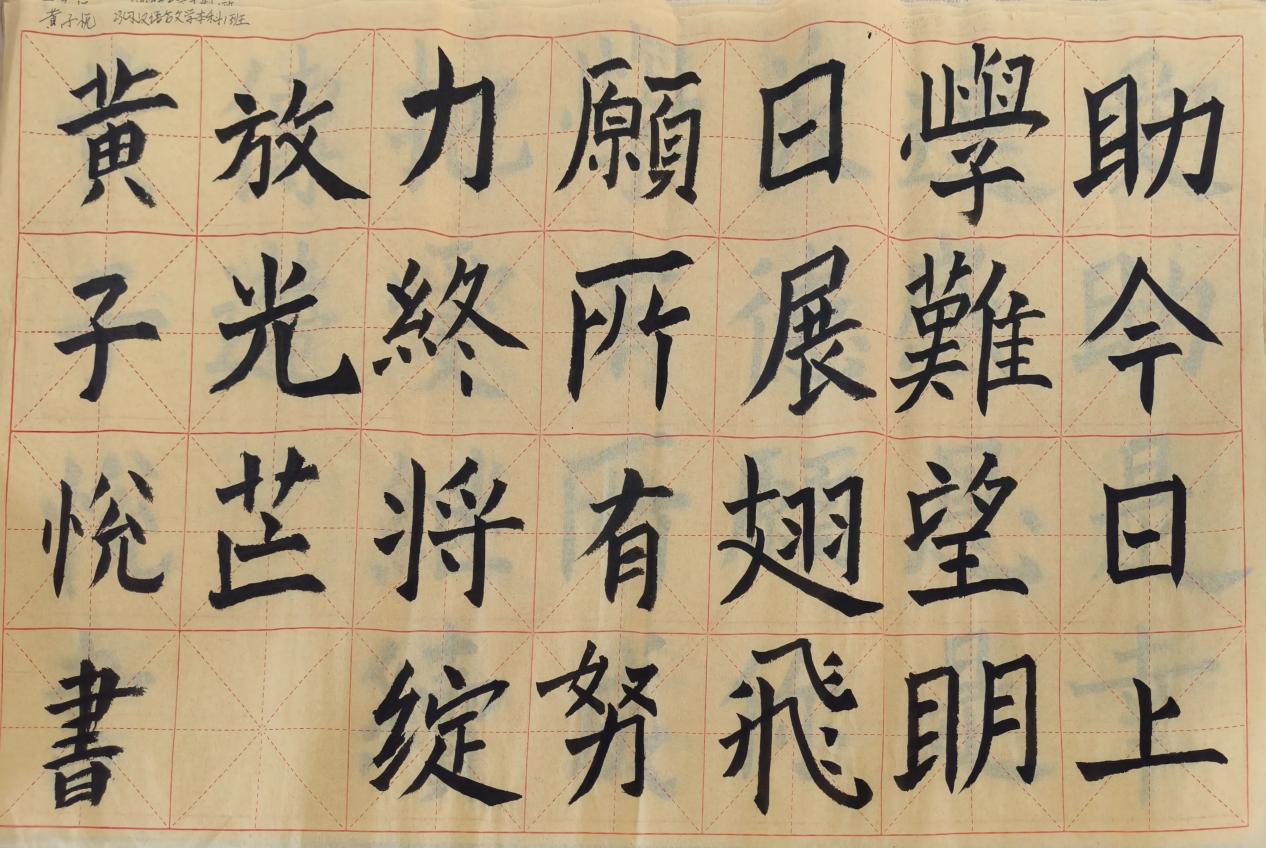 黄子悦 汉语言文学本科1班
助今日上
學難望眀
日展翅飛
願所有努
力終将绽
放光芒
黄子悦書